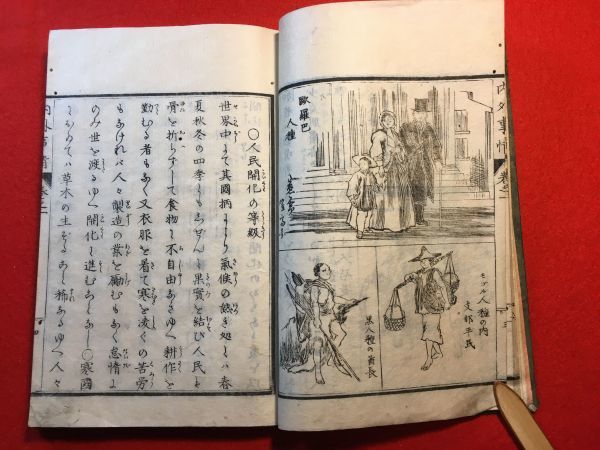 内外事情 巻二
歐羅巴
人種
モゴル人種の内
支那平民
黒人種の酋長
〇人民開化の等級
世界中にて其國柄により氣候の熱き処にハ春
夏秋冬の四季もなく
果實を結び人民も
骨を折らずして食物に不自由なきゆへ耕作を
勤むる者もなく又衣服を着て寒を凌ぐの苦労
もなければ人々製造の業を勵むもなく怠惰に
のみ世を渡るゆへ開化に進むことなし〇寒國
にをゐてハ草木の生ずること稀なるゆへ人々